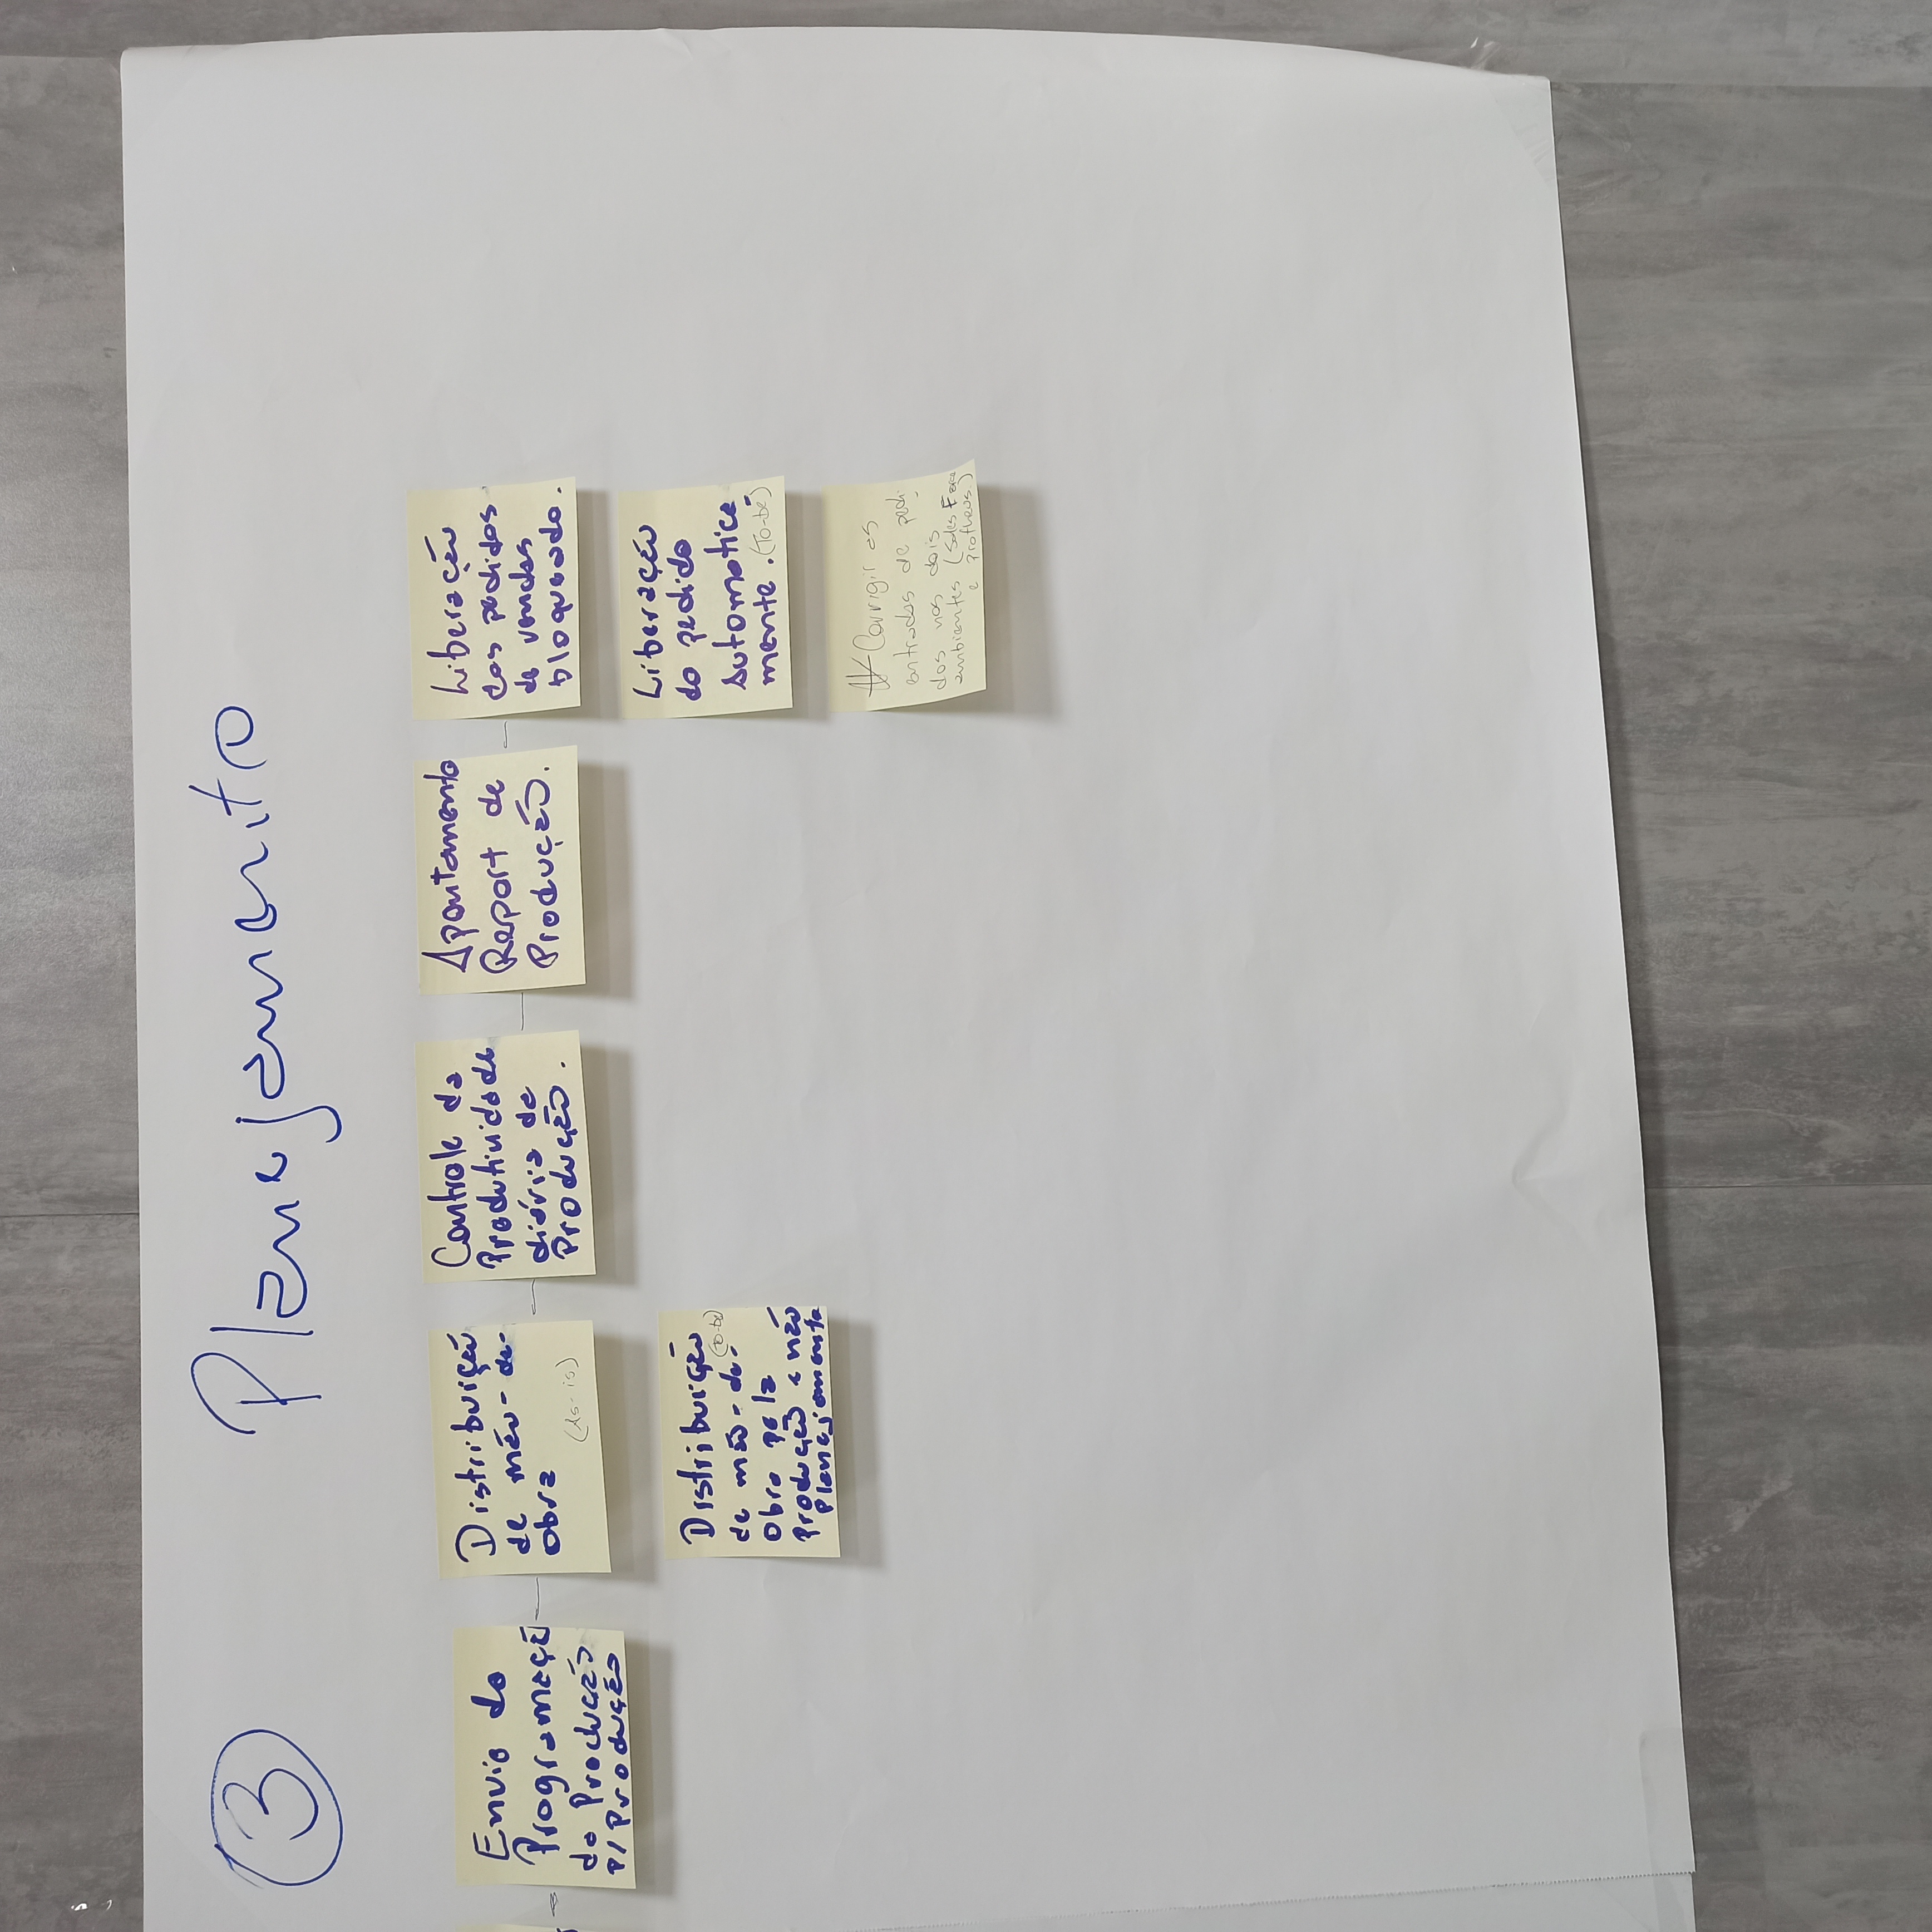 3
Planejamento
Envio da
Programaçã
da Produção
P/ Produção
Distribuição
de mão-de-
obra
(As-is)
Distribuição
de mão-de- (To-be)
obra pela
Produção e não
Planejamento
Controle da
Produtividade
diária de
Produção.
Apontamento
Report de
Produção.
Liberação
dos pedidos
de vendas
bloqueado.
Liberação
do pedido
automatica
mente. (To-be)
# Corrigir as
entradas de pedi-
dos nos dois
ambientes (Sales Force
e Protheus)